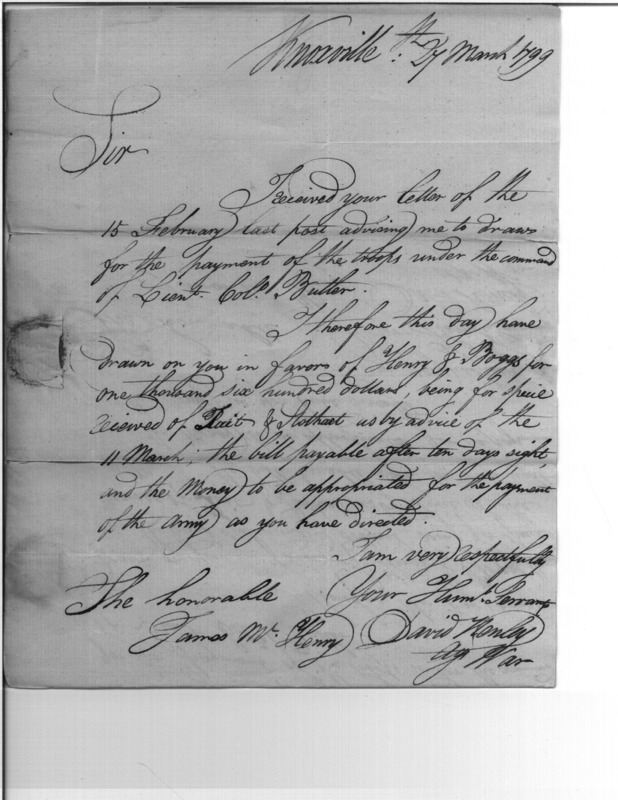 Knoxville 27th March 1799
Sir
I received your letter of the
15 February last post advising me to draw
for the payment of the troops under the command
of Lieut. Colo. Butler.
I therefore this day have
drawn on you in favor of Henry & Boggs for
one thousand six hundred dollars, being for specie
received of & Stothart as by advice of the
11 March; the bill payable after ten days sight,
and the money to be appropriated for the payment
of the army as you have directed.
I am very respectfully
The honorable Your Humt. Servant
James Mc. Henry David Henley
Agt War